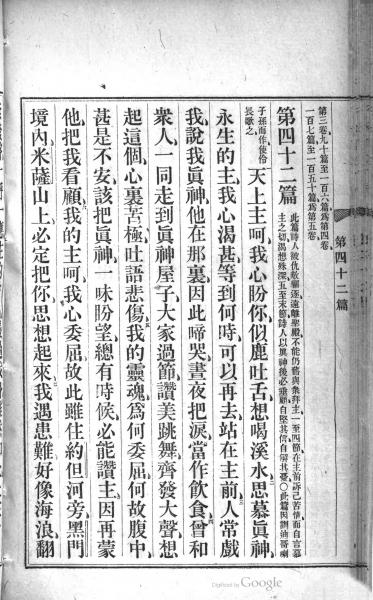 第三卷九十至一百六篇爲第四卷
一百七篇至一百五十篇爲第五卷
第四十二篇
此篇詩人被仇敵驅逐遠離聖殿不能仍舊與衆拜主一至四節在主前訴己苦情而自言慕
主之切渴想殊深五至末節詩人以眞神後必垂顧自堅其信自解其憂○此篇因訓誨可喇
子孫而作使伶
長歌之
天上主呵我心盼你似鹿吐舌想喝溪水思慕眞神
永生的主我心渴甚等到何時可以再去站在主前人常戲
我說我眞神他在那裏因此啼哭晝夜把淚當作飲食曾和
衆人一同走到眞神屋子大家過節讚美跳舞齊發大聲想
起這個心裏苦極吐語悲傷我的靈魂爲何委屈何故腹中
甚是不安該把眞神一味盼望總有時候必能讚主因再蒙
他把我看顧我的主呵我心委屈故此雖住約但河旁黑門
境內米薩山上必定把你思想起來我遇患難好像海浪翻
第四十二篇
Digitized by Google